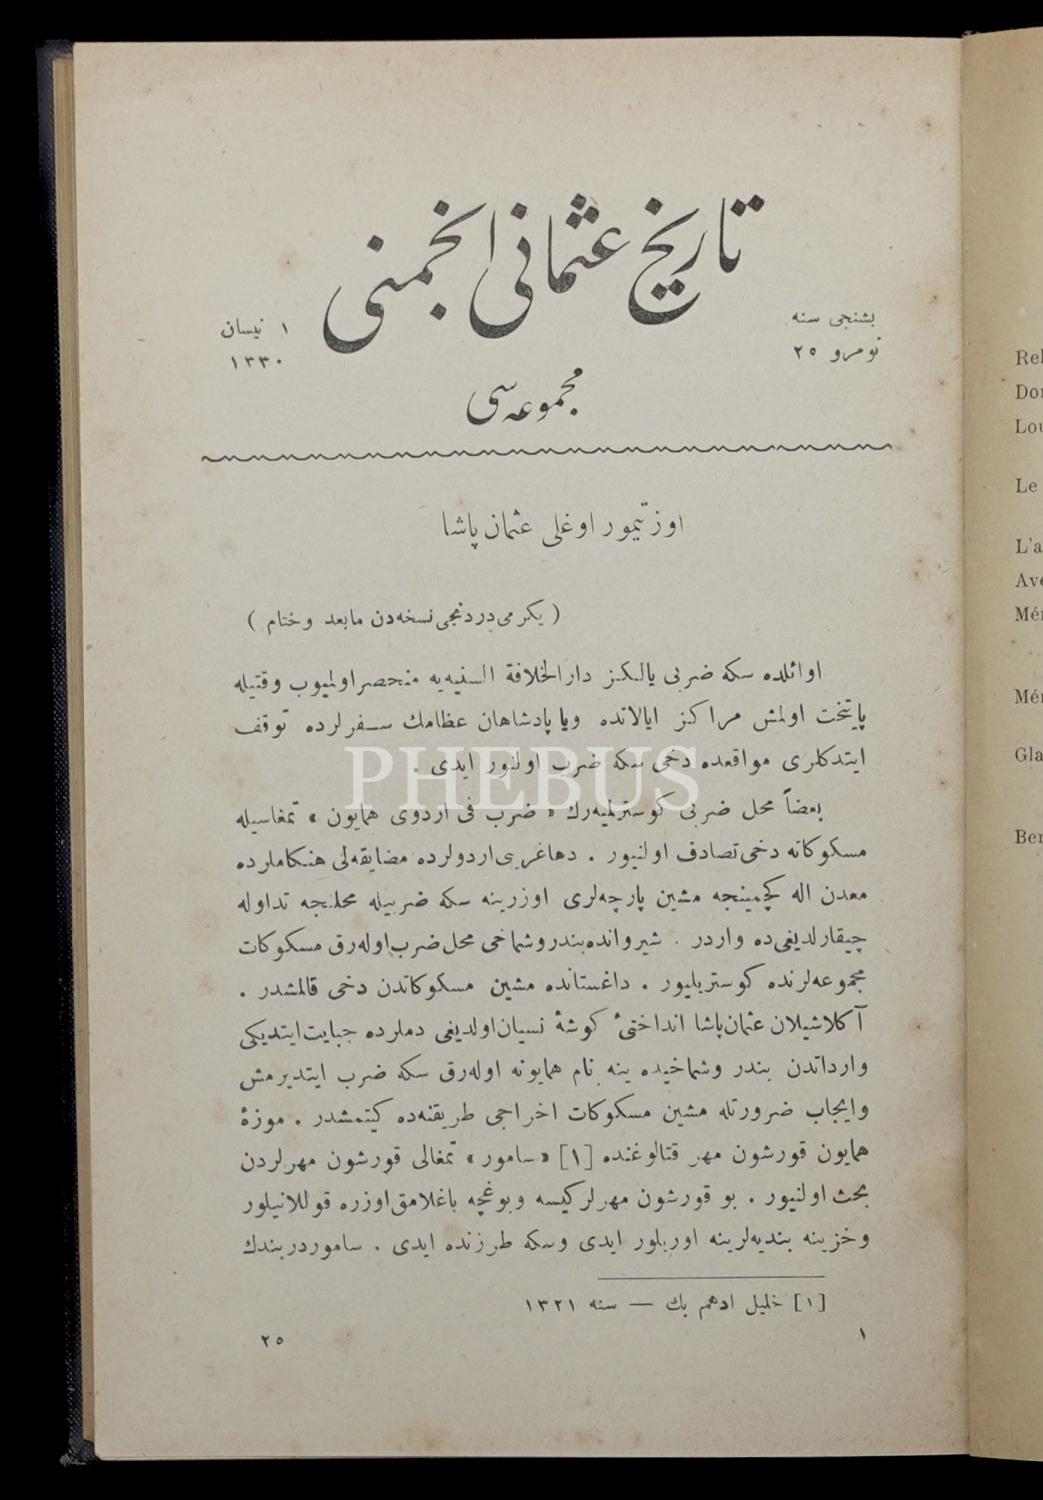 تاريخ عثمانى انجمنى
بشنجى سنه
نومرو ٢٥
١ نيسان
١٣٣٠
مجموعه‌سى
اوزتيمور اوغلى عثمان پاشا
( يكرمى دردنجى نسخه‌دن مابعد وختام )
اوائلده سكه ضربى يالكز دارالخلافة السنيه‌يه منحصر اولميوب وقتيله
پايتخت اولمش مراكز ايالاتده ويا پادشاهان عظامك سفرلرده توقف
ايتدكلرى مواقعده دخى سكه ضرب اولنور ايدى .
بعضاً محل ضربى كوسترلميه‌رك « ضرب فى اردوى همايون » تمغاسيله
مسكوكاته دخى تصادف اولنيور . دهاغريبى اردولرده مضايقه‌لى هنكاملرده
معدن اله كچمينجه مشين پارچه‌لرى اوزرينه سكه ضربيله محلنجه تداوله
چيقارلديغى‌ده واردر . شيروانده بندر وشماخى محل ضرب اوله‌رق مسكوكات
مجموعه‌لرنده كوستريليور . داغستانده مشين مسكوكاتدن دخى قالمشدر .
آكلاشيلان عثمان پاشا انداختۀ كوشۀ نسيان اولديغى دملرده جبايت ايتديكى
وارداتدن بندر وشماخيده ينه نام همايونه اوله‌رق سكه ضرب ايتديرمش
وايجاب ضرورتله مشين مسكوكات اخراجى طريقنه‌ده كيتمشدر . موزۀ
همايون قورشون مهر قتالوغنده [١] « سامور » تمغالى قورشون مهرلردن
بحث اولنيور . بو قورشون مهرلر كيسه وبوغچه باغلامق اوزره قوللانيلور
وخزينه بنديه‌لرينه اوريلور ايدى وسكه طرزنده ايدى . سامور دربندك
[١] خليل ادهم بك — سنه ١٣٢١
١
٢٥
PHEBUS
Le
L'a